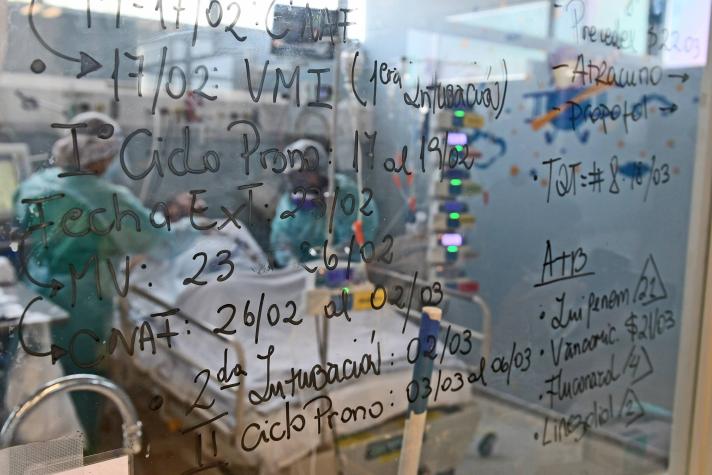 17/02: CNAF
17/02: VMI (1era Intubación)
I° Ciclo Prono: 17 al 19/02
Fecha Ext: 23/02
MV: 23 26/02
CNAF: 26/02 al 02/03
2da Intubación: 02/03
II Ciclo Prono: 03/03 al 06/03
- Precedex 22.03
- Atracurio →
- Propofol →
TQT: # 8 18/03
ATB
· Imipenem 21
· Vancomic. 21/03
· Fluconazol 4
· Linezolid 2